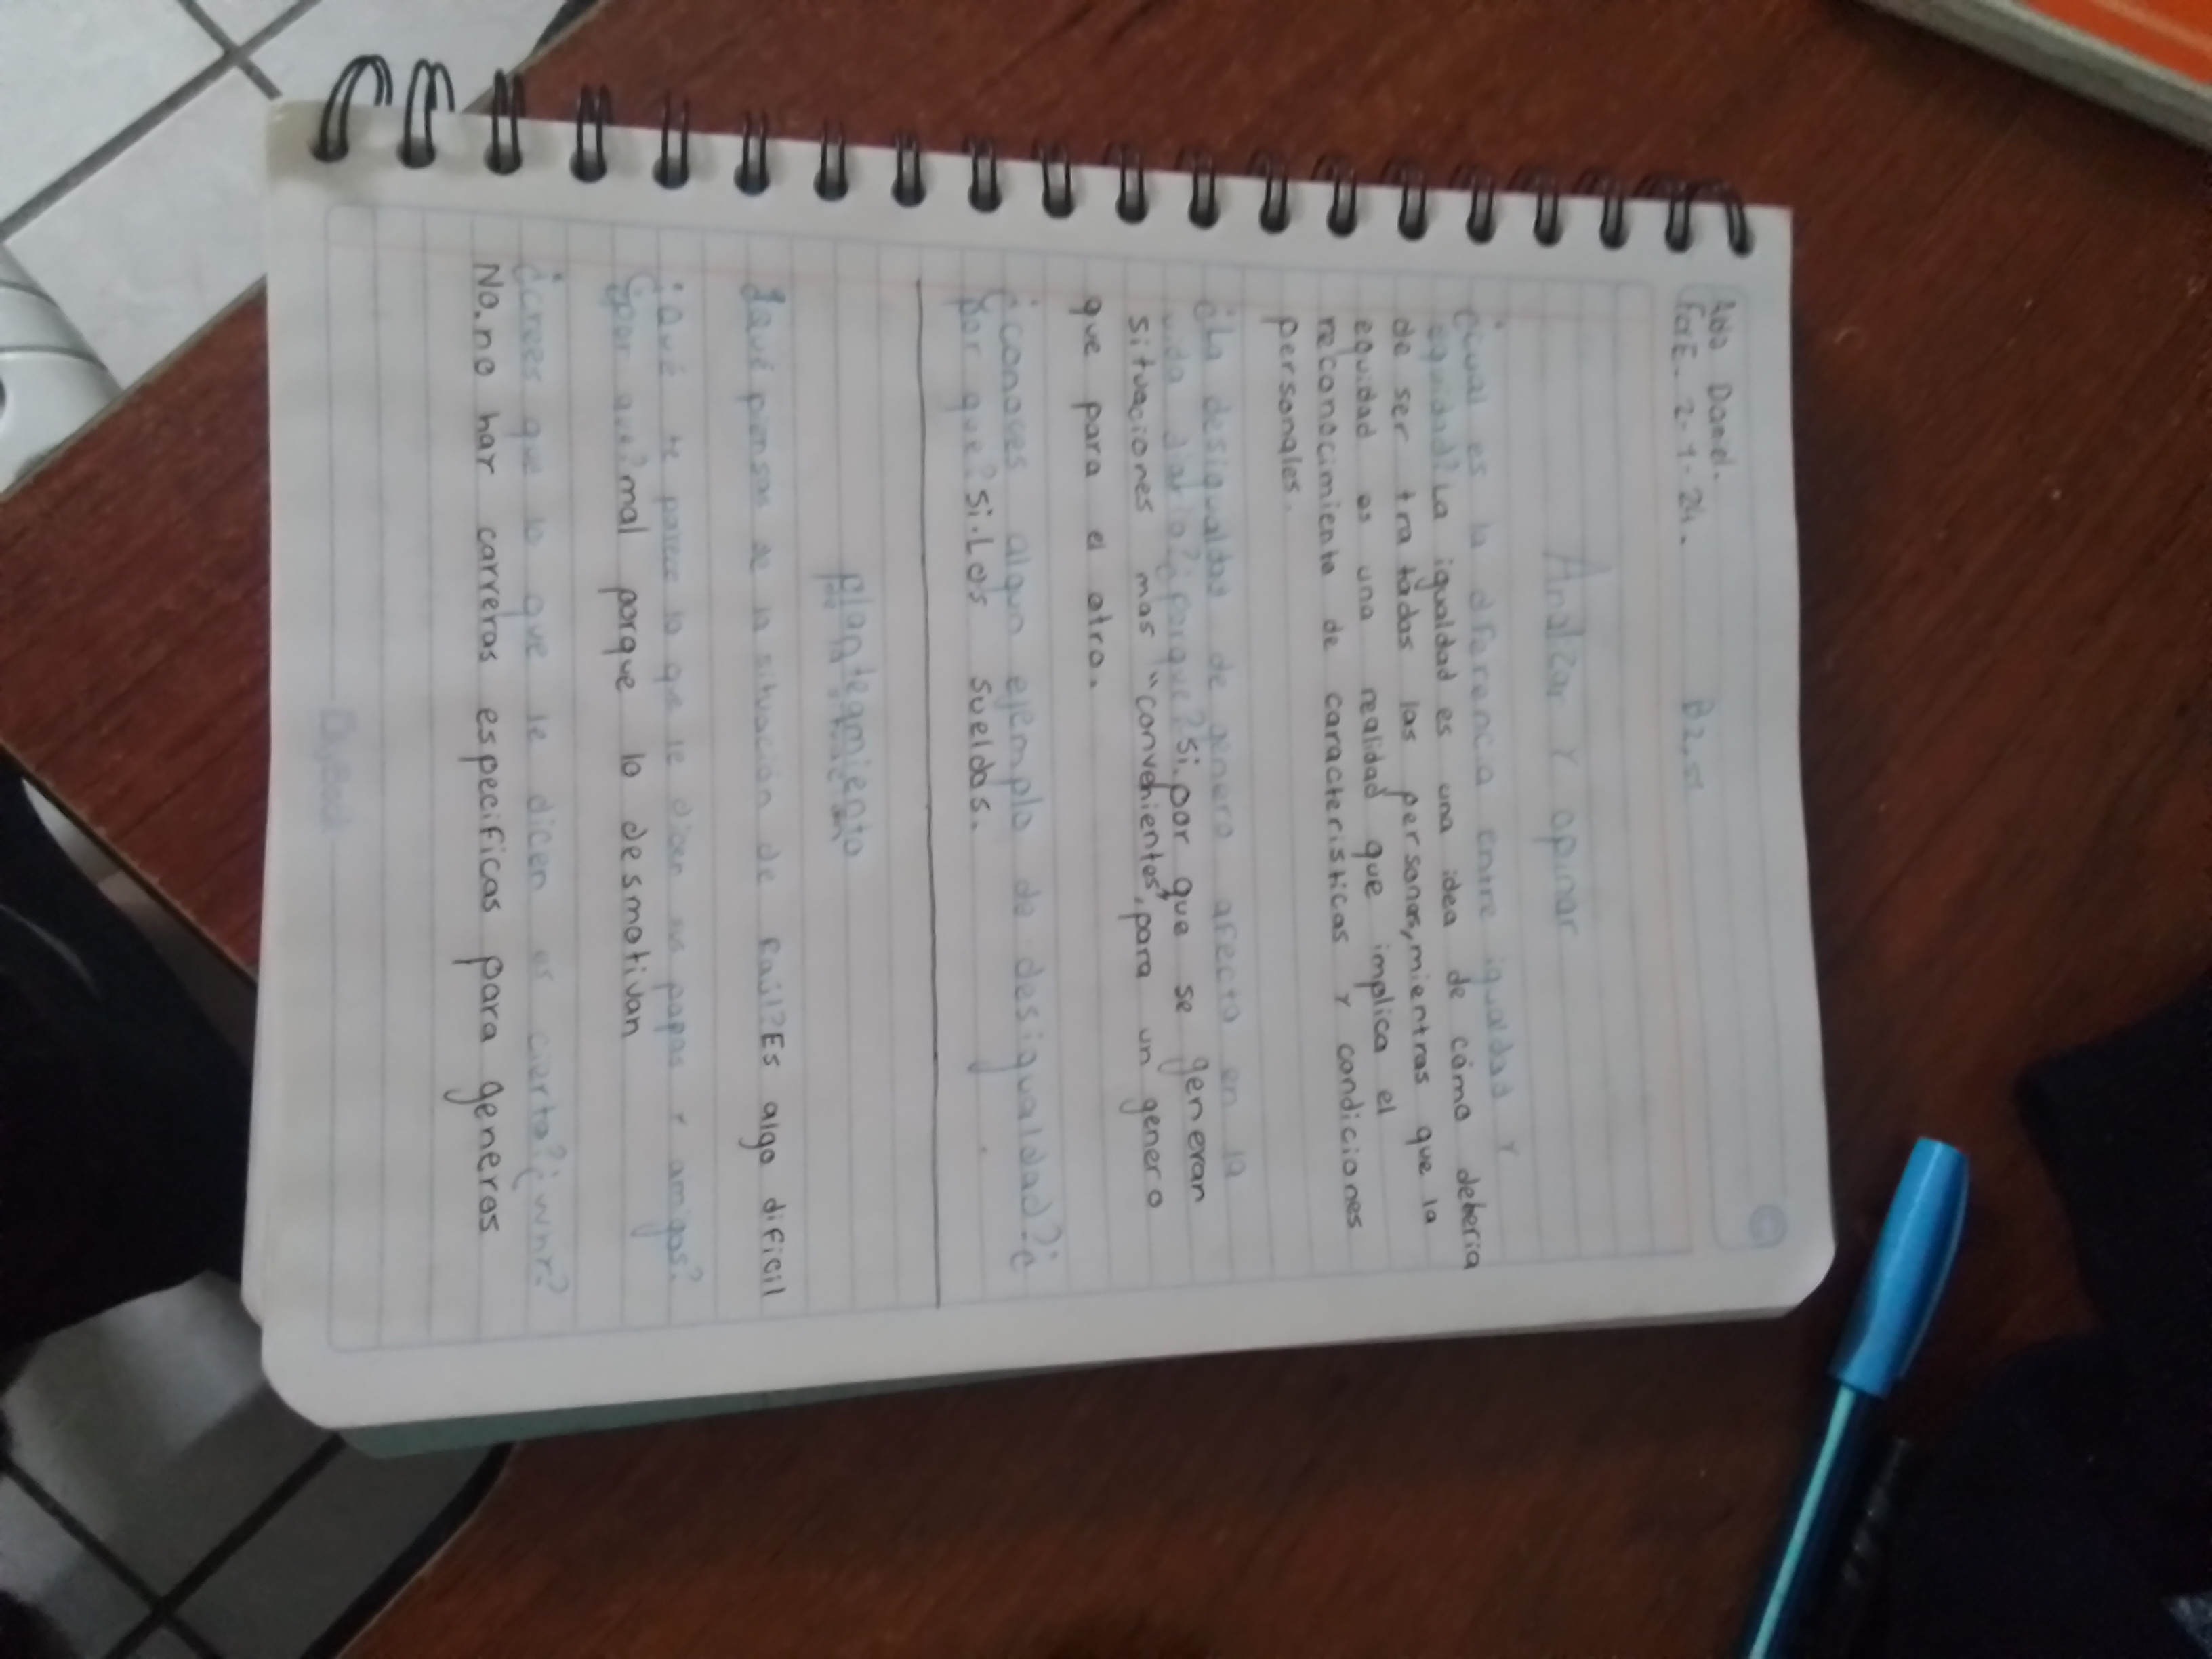 Ado Daniel.
FCYE. 2-1-24. B2,S1
Analizar Y opinar
¿cual es la diferencia entre igualdad Y
equidad? La igualdad es una idea de cómo deberia
de ser tratadas las personas, mientras que la
equidad es una realidad que implica el
reconocimiento de caracteristicas Y condiciones
personales.
¿La desigualdad de genero afecta en la
vida diario? ¿porque? Si, por que se generan
situaciones mas "convenientes", para un genero
que para el otro.
¿conoces algun ejemplo de desigualdad? ¿
por que? Si. Los sueldos.
Planteamiento
¿qué piensas de la situación de Raúl? Es algo dificil
¿Qué te parece lo que le dicen sus papas Y amigos?
¿por que? mal porque lo desmotivan
¿crees que lo que le dicen es cierto? ¿
No. no har carreras especificas para generos